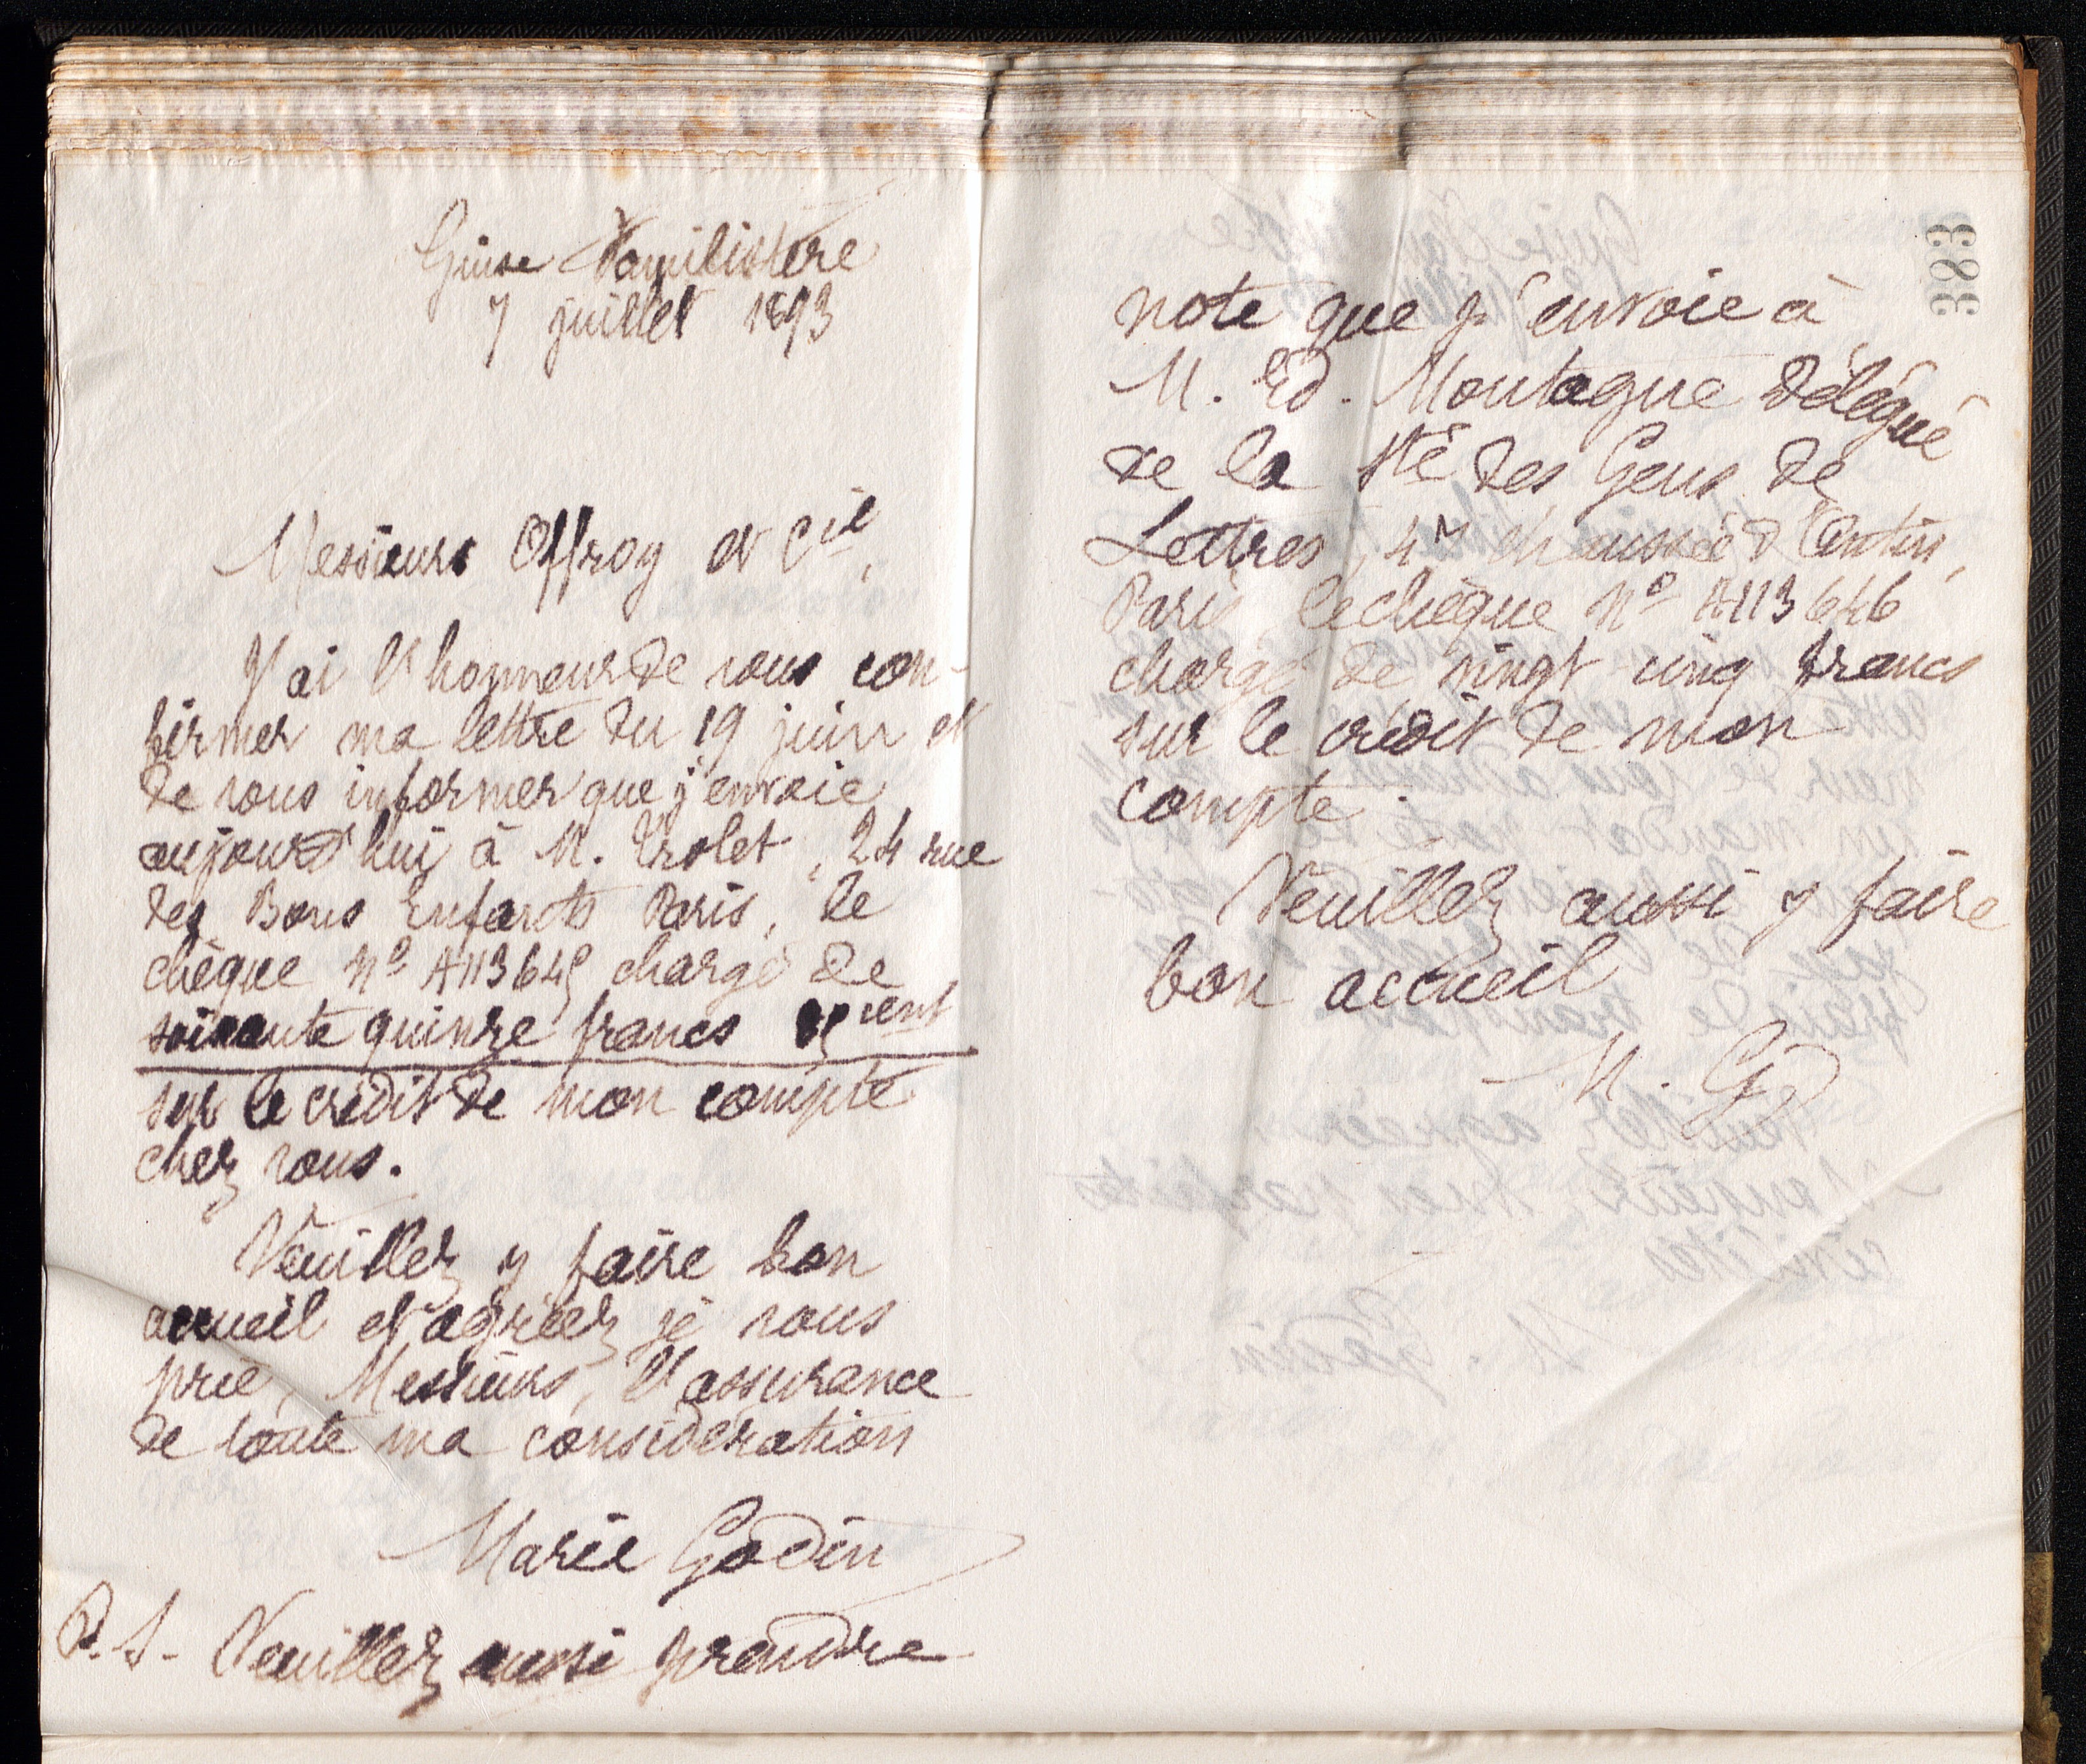 Guise Familistère
7 juillet 1893
Messieurs Offroy et Cie,
J'ai l'honneur de vous con-
firmer ma lettre du 19 juin et
de vous informer que j'envoie
aujourd'hui à M. Trolet, 24 rue
des Bons Enfants Paris, le
chèque No A113645 chargé de
soixante quinze francs cent
sur le crédit de mon compte
chez vous.
Veuillez y faire bon
accueil et agréer je vous
prie, Messieurs, l'assurance
de toute ma considération
Marie Godin
P. S- Veuillez aussi prendre
383
note que j'envoie à
M. Ed. Montagne délégué
de la Sté des Gens de
Lettres, 47 chaussée d'Antin,
Paris, le chèque No A113646
chargé de vingt cinq francs
sur le crédit de mon
compte.
Veuillez aussi y faire
bon accueil
M. GD